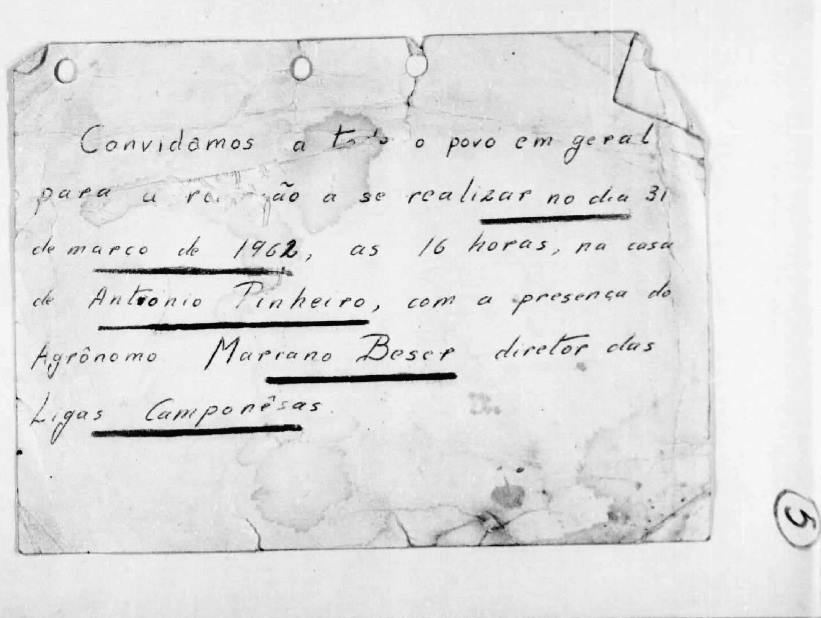 Convidâmos a todo o povo em geral
para a reunião a se realizar no dia 31
de março de 1962, as 16 horas, na casa
de Antonio Pinheiro, com a presença do
Agrônomo Mariano Beser diretor das
Ligas Camponêsas.
5